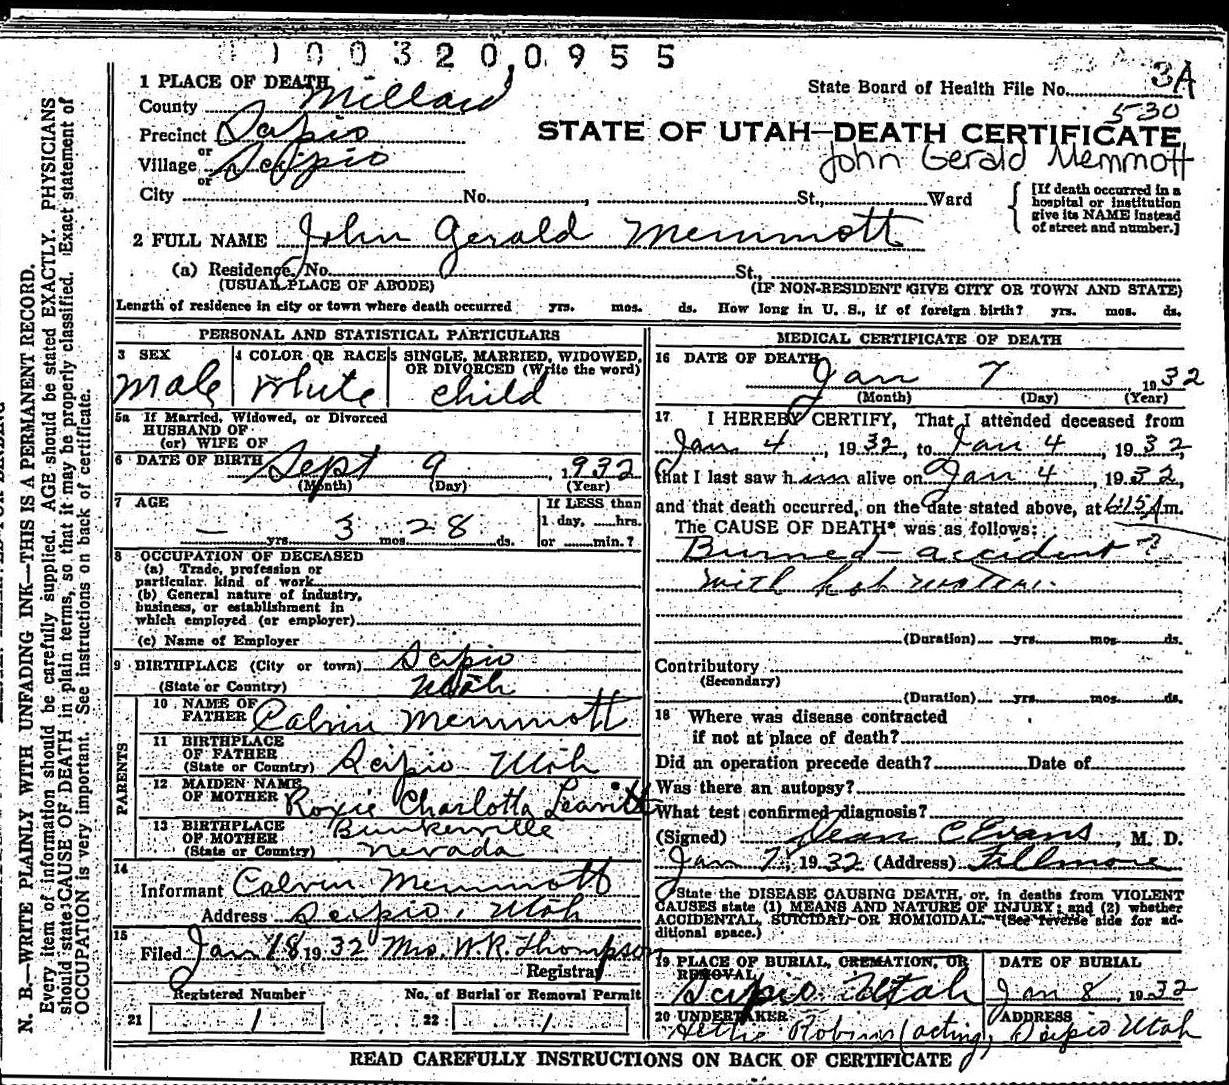 003200955
1 PLACE OF DEATH
State Board of Health File No. 3A
County Millard
530
Precinct Scipio
STATE OF UTAH—DEATH CERTIFICATE
or
Village Scipio
John Gerald Memmott
or
City No. , St., Ward
[If death occurred in a hospital or institution give its NAME instead of street and number.]
2 FULL NAME John Gerald Memmott
(a) Residence, No. St.,
(USUAL PLACE OF ABODE) (IF NON-RESIDENT GIVE CITY OR TOWN AND STATE)
Length of residence in city or town where death occurred yrs. mos. ds. How long in U. S., if of foreign birth? yrs. mos. ds.
PERSONAL AND STATISTICAL PARTICULARS
3 SEX 4 COLOR OR RACE 5 SINGLE, MARRIED, WIDOWED,
OR DIVORCED (Write the word)
Male White Child
5a If Married, Widowed, or Divorced
HUSBAND OF
(or) WIFE OF
6 DATE OF BIRTH Sept 9 , 1932
(Month) (Day) (Year)
7 AGE If LESS than
— yrs. 3 mos. 28 ds. 1 day, hrs.
or min.?
8 OCCUPATION OF DECEASED
(a) Trade, profession or
particular kind of work
(b) General nature of industry,
business, or establishment in
which employed (or employer)
(c) Name of Employer
9 BIRTHPLACE (City or town) Scipio
(State or Country) Utah
PARENTS
10 NAME OF
FATHER Calvin Memmott
11 BIRTHPLACE
OF FATHER
(State or Country) Scipio Utah
12 MAIDEN NAME
OF MOTHER Roxie Charlotta Leavitt
13 BIRTHPLACE Bunkerville
OF MOTHER
(State or Country) Nevada
14
Informant Calvin Memmott
Address Scipio, Utah
15
Filed Jan 18 1932 Mrs. W.R. Thompson
Registrar
Registered Number No. of Burial or Removal Permit
21 1 22 1
MEDICAL CERTIFICATE OF DEATH
16 DATE OF DEATH
Jan 7 , 1932
(Month) (Day) (Year)
17 I HEREBY CERTIFY, That I attended deceased from
Jan 4 , 1932, to Jan 4 , 1932,
that I last saw him alive on Jan 4 , 1932,
and that death occurred, on the date stated above, at m.
The CAUSE OF DEATH* was as follows:
Burned - accident ?
with hot water.
(Duration) yrs. mos. ds.
Contributory
(Secondary)
(Duration) yrs. mos. ds.
18 Where was disease contracted
if not at place of death?
Did an operation precede death? Date of
Was there an autopsy?
What test confirmed diagnosis?
(Signed) Dean C Evans , M. D.
Jan 7 , 1932 (Address) Fillmore
State the DISEASE CAUSING DEATH, or, in deaths from VIOLENT
CAUSES state (1) MEANS AND NATURE OF INJURY; and (2) whether
ACCIDENTAL, SUICIDAL, OR HOMICIDAL. (See reverse side for ad-
ditional space.)
19 PLACE OF BURIAL, CREMATION, OR
REMOVAL DATE OF BURIAL
Scipio Utah Jan 8 , 1932
20 UNDERTAKER ADDRESS
Hettie Robins (acting) Scipio Utah
READ CAREFULLY INSTRUCTIONS ON BACK OF CERTIFICATE
N. B.—WRITE PLAINLY WITH UNFADING INK—THIS IS A PERMANENT RECORD.
Every item of information should be carefully supplied. AGE should be stated EXACTLY. PHYSICIANS
should state CAUSE OF DEATH in plain terms, so that it may be properly classified. Exact statement of
OCCUPATION is very important. See instructions on back of certificate.